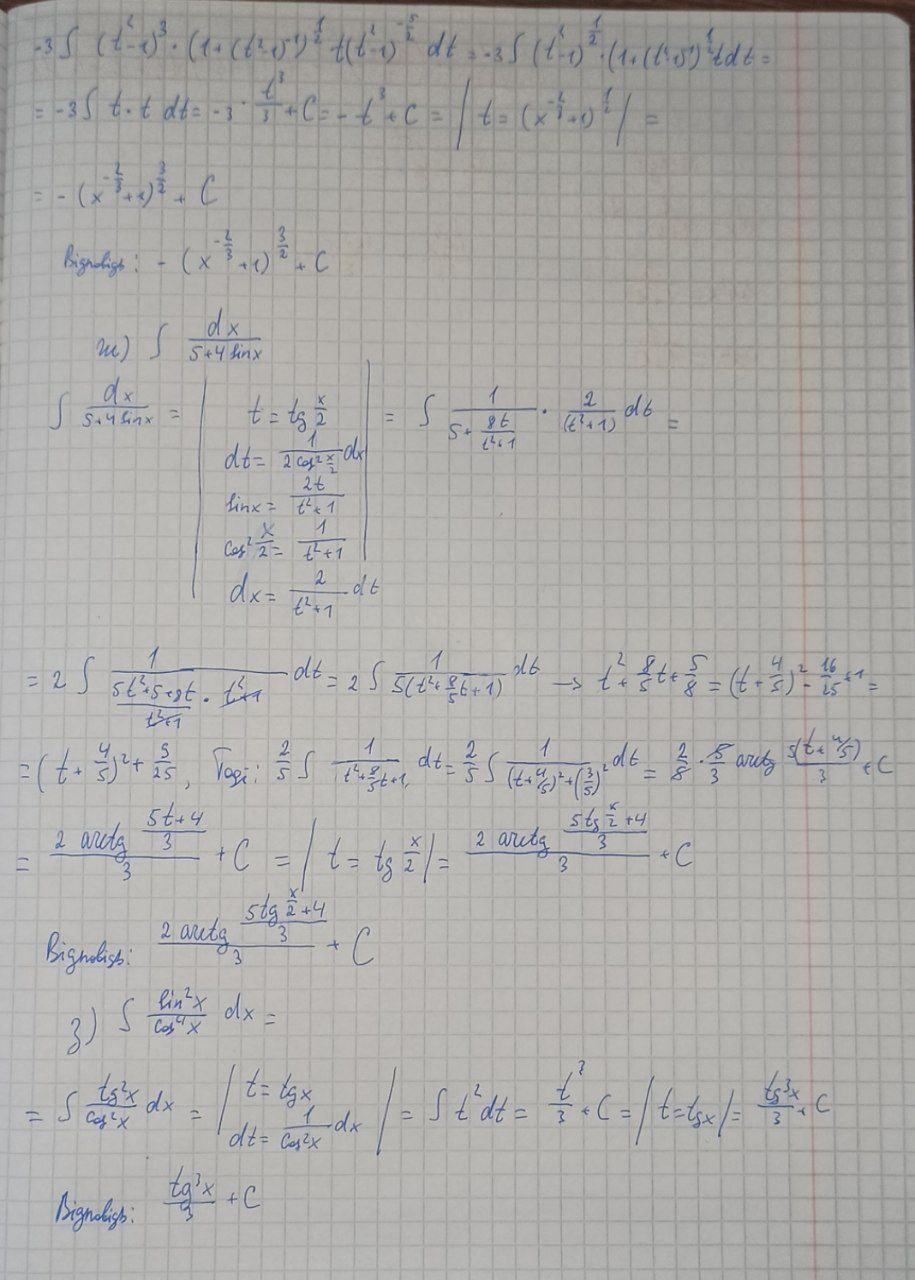 -3∫ (t²-1)³ · (1+(t²-1)⁻¹)^(1/2) t(t²-1)^(-5/2) dt = -3∫ (t²-1)^(1/2) · (1+(t²-1)⁻¹)^(1/2) t dt =
= -3∫ t · t dt = -3 · t³/3 + C = -t³ + C = | t = (x^(-2/3)+1)^(1/2) | =
= -(x^(-2/3)+1)^(3/2) + C
Відповідь: -(x^(-2/3)+1)^(3/2) + C
ж) ∫ dx/(5+4sinx)
∫ dx/(5+4sinx) = | t = tg x/2 | = ∫ 1/(5+8t/(t²+1)) · 2/(t²+1) dt =
dt = 1/(2cos² x/2) dx
sinx = 2t/(t²+1)
cos² x/2 = 1/(t²+1)
dx = 2/(t²+1) dt
= 2∫ 1/((5t²+5+8t)/(t²+1) · t²+1) dt = 2∫ 1/(5(t²+8/5t+1)) dt → t²+8/5t+5/8 = (t+4/5)²-16/25+1 =
= (t+4/5)²+9/25, Тоді: 2/5 ∫ 1/(t²+8/5t+1) dt = 2/5 ∫ 1/((t+4/5)²+(3/5)²) dt = 2/8 · 5/3 arctg 5(t+4/5)/3 + C
= (2 arctg (5t+4)/3)/3 + C = | t = tg x/2 | = (2 arctg (5tg x/2+4)/3)/3 + C
Відповідь: (2 arctg (5tg x/2+4)/3)/3 + C
з) ∫ sin²x/cos⁴x dx =
= ∫ tg²x/cos²x dx = | t = tgx | = ∫ t² dt = t³/3 + C = | t = tgx | = tg³x/3 + C
dt = 1/cos²x dx
Відповідь: tg³x/3 + C